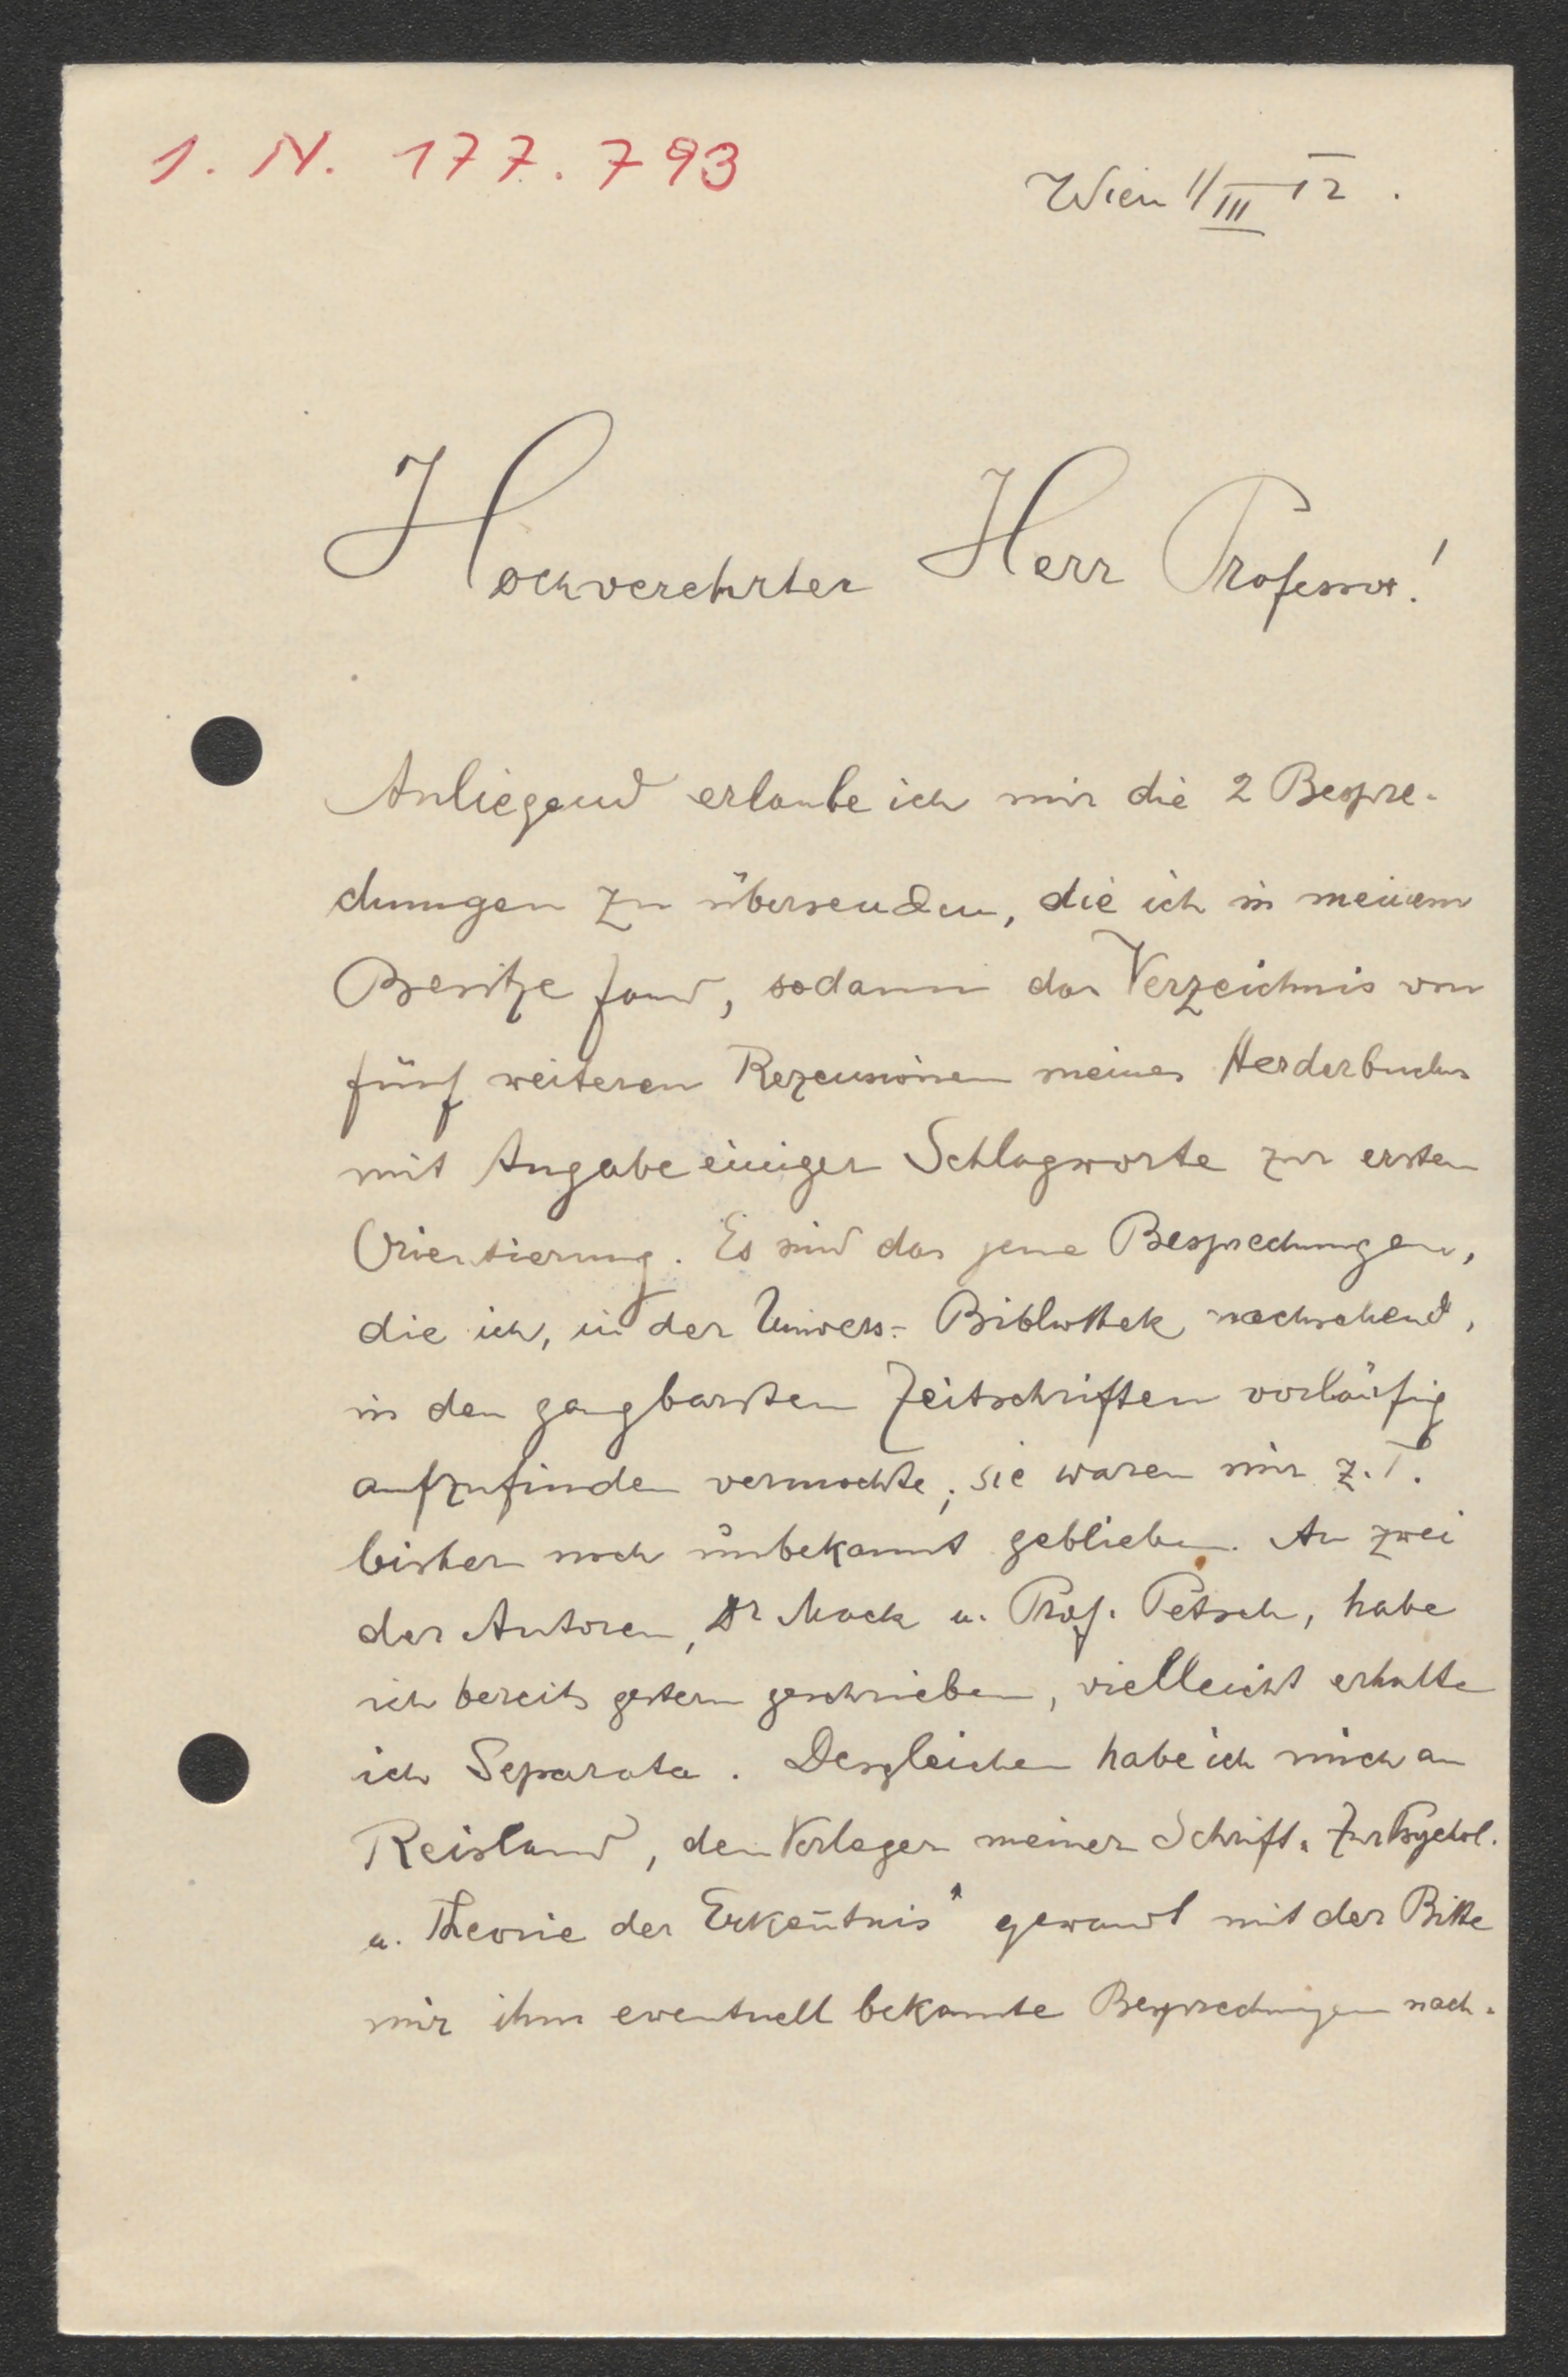 1. N. 177.793
Wien 1/III 12.
Hochverehrter Herr Professor!
Anliegend erlaube ich mir die 2 Bespre-
chungen zu übersenden, die ich in meinem
Besitze fand, sodann das Verzeichnis von
fünf weiteren Rezensionen meines Herderbuches
mit Angabe einiger Schlagworte zur ersten
Orientierung. Es sind das jene Besprechungen,
die ich, in der Univers.- Bibliothek nachsehend,
in den gangbarsten Zeitschriften vorläufig
aufzufinden vermochte; sie waren mir z. T.
bisher noch unbekannt geblieben. An zwei
der Autoren, Dr Mack u. Prof. Petsch, habe
ich bereits gestern geschrieben, vielleicht erhalte
ich Separata. Desgleichen habe ich mich an
Reisland, den Verleger meiner Schrift „Zur Psychol.
u. Theorie der Erken̄tnis" gewandt mit der Bitte
mir ihm eventuell bekannte Besprechungen nach-